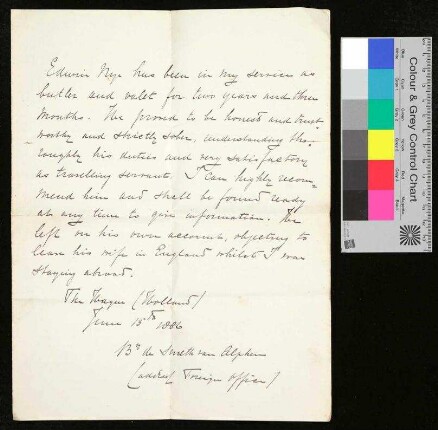 Edwin Nye has been in my service as
butler and valet for two years and three
months. He proved to be honest and trust
worthy and strictly sober, understanding tho-
roughly his duties and very satisfactory
as travelling servant. I can highly recom-
mend him and shall be found ready
at any time to give information. He
left on his own account, objecting to
leave his wife in England whilst I was
staying abroad.
The Hague (Holland)
June 15th 1886
Bn de Smeth van Alphen
(address Foreign Office)
Colour & Grey Control Chart